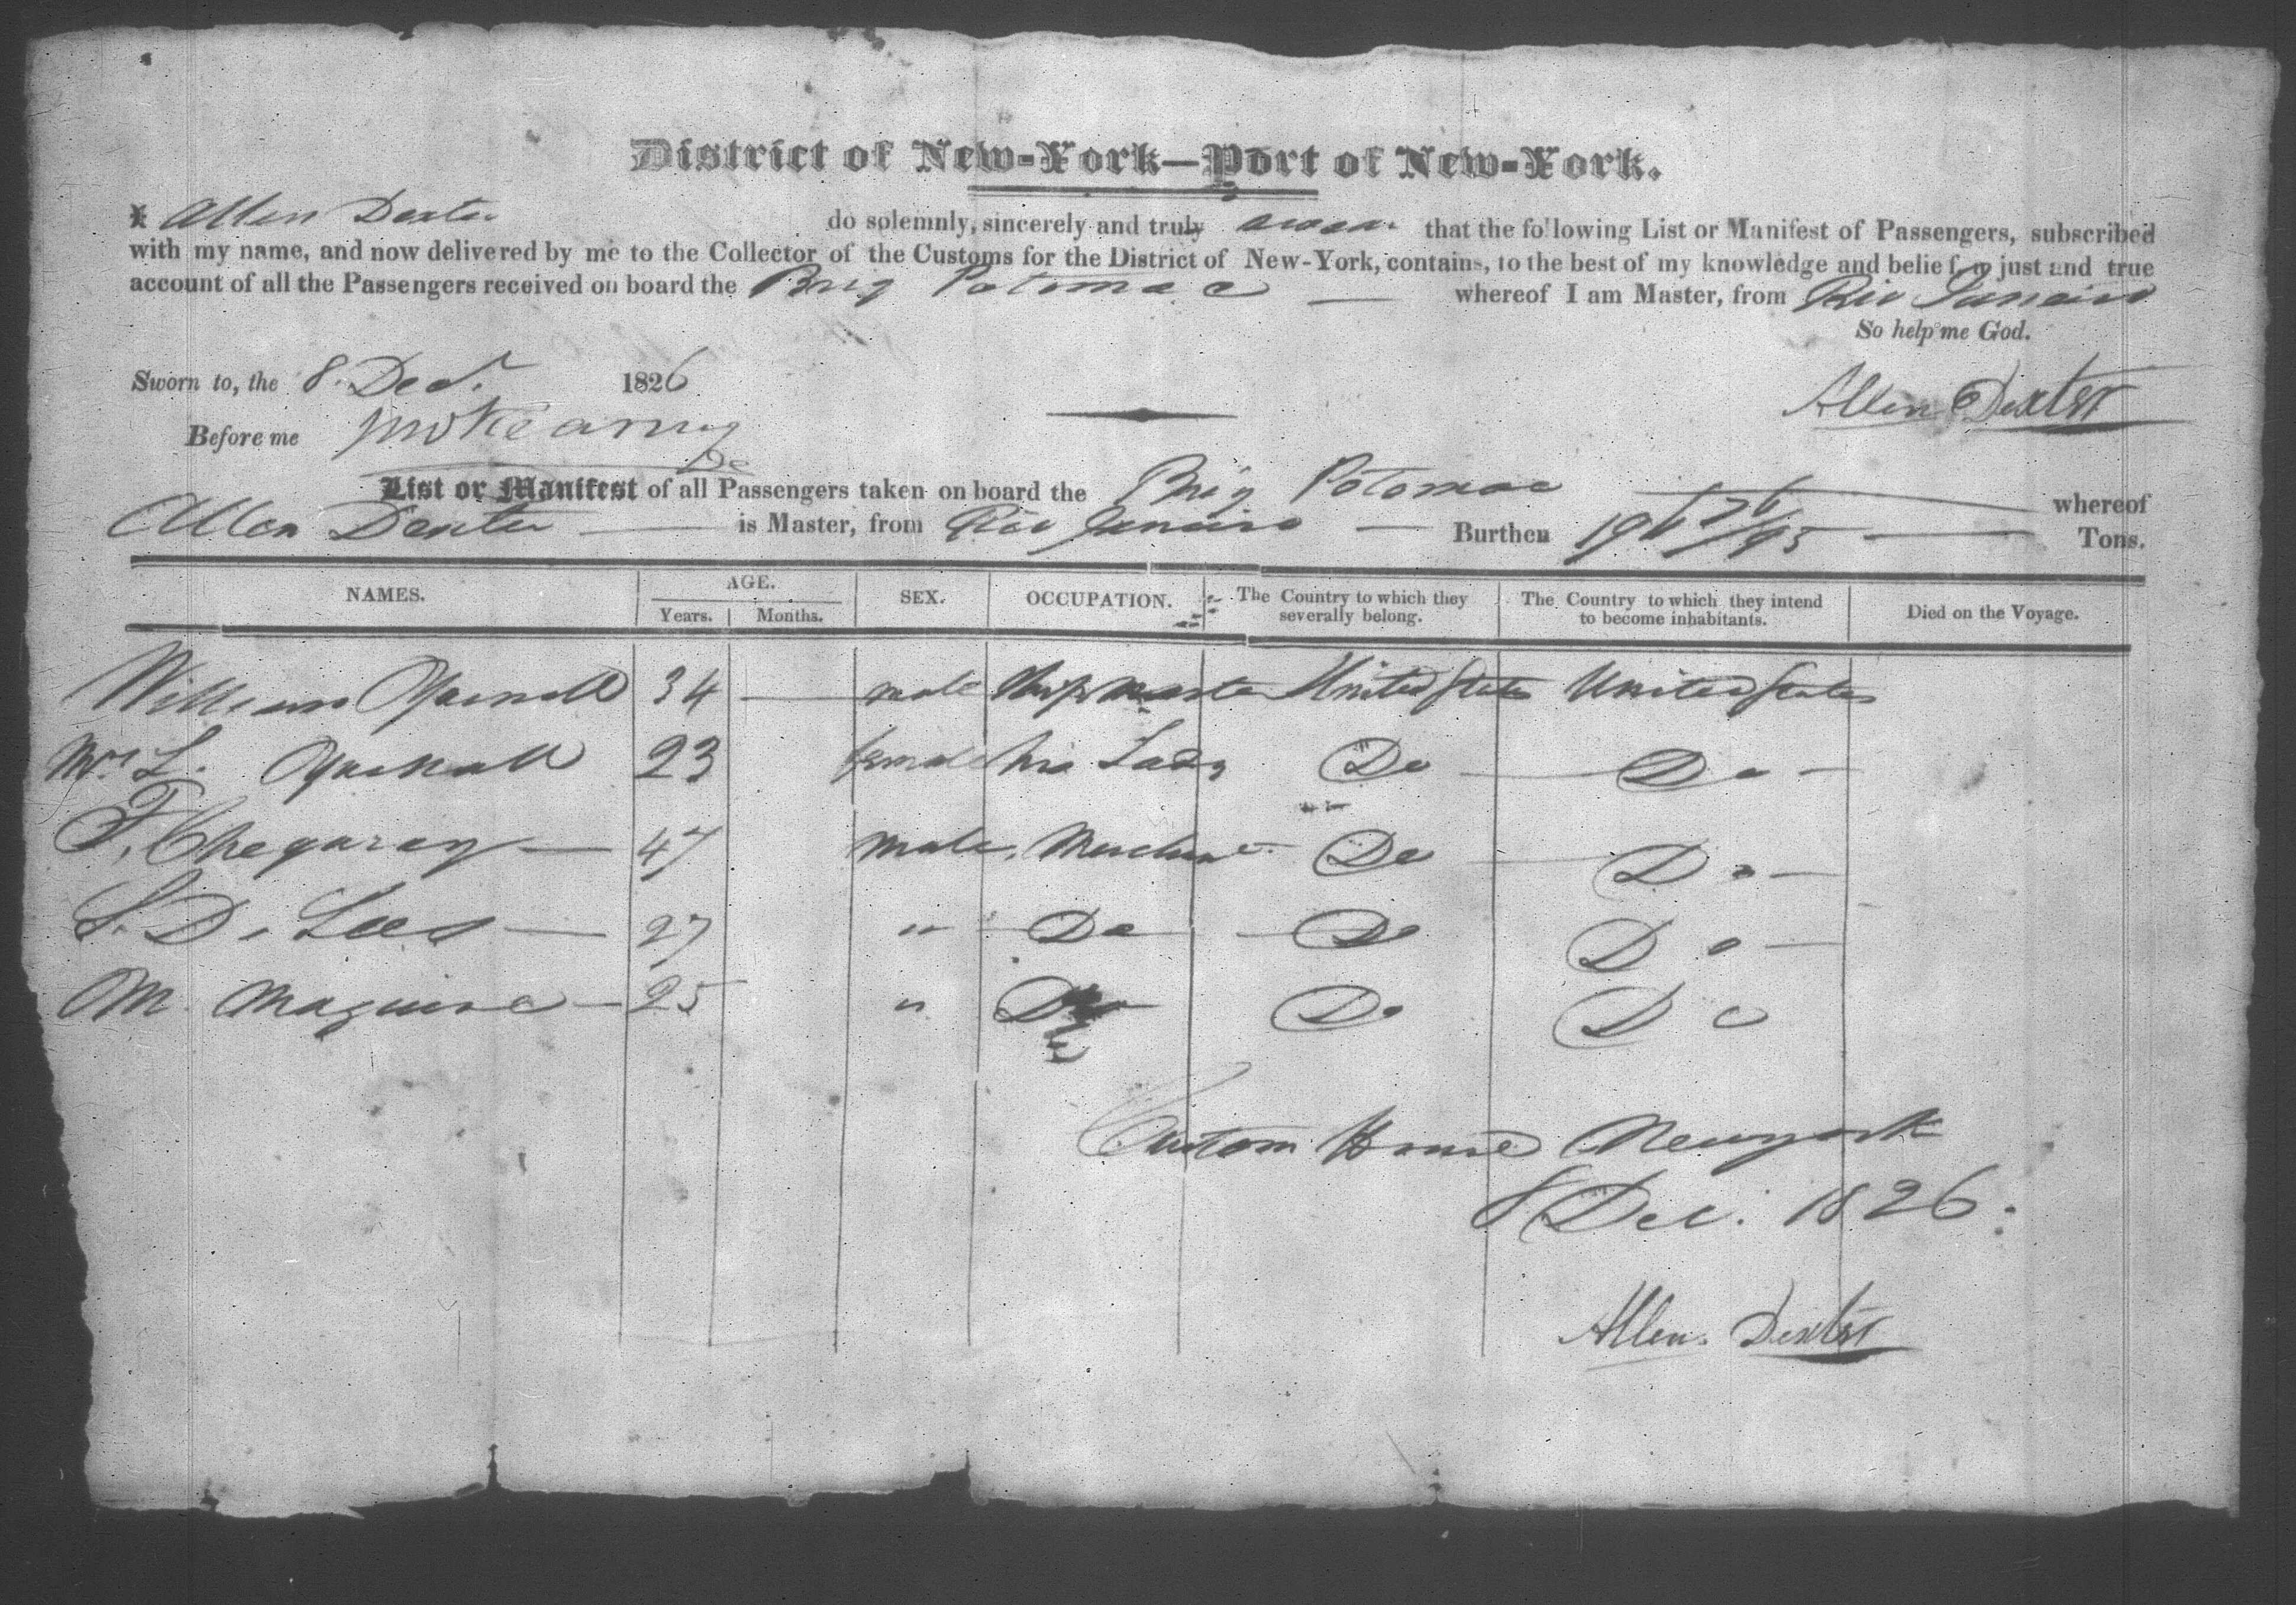 District of New-York—Port of New-York.
I Allen Dexter do solemnly, sincerely and truly swear that the following List or Manifest of Passengers, subscribed
with my name, and now delivered by me to the Collector of the Customs for the District of New-York, contains, to the best of my knowledge and belief, a just and true
account of all the Passengers received on board the Brig Potomac — whereof I am Master, from Rio Janeiro
So help me God.
Sworn to, the 8. Decr. 1826
Allen Dexter
Before me
List or Manifest of all Passengers taken on board the Brig Potomac whereof
Allen Dexter — is Master, from Rio Janeiro — Burthen 196 76/95 — Tons.
NAMES. AGE. SEX. OCCUPATION. The Country to which they severally belong. The Country to which they intend to become inhabitants. Died on the Voyage.
Years. Months.
William 34 — male Ship master United States United States
Mrs L. 23 female his Lady Do — Do —
F. Chegaray — 47 male. Merchant Do Do —
S. D. Lees — 27 " Do — Do Do —
M. Maguire — 25 " Do Do Do
Custom House Newyork
8 Dec. 1826.
Allen Dexter